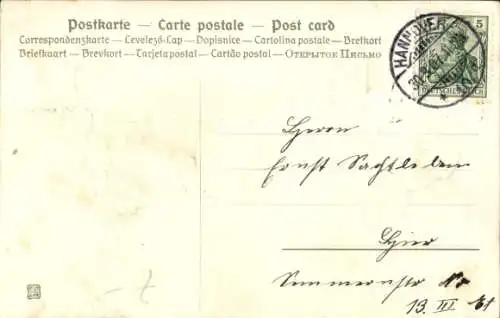 Postkarte — Carte postale — Post card
Correspondenzkarte — Levelező-Lap — Dopisnice — Cartolina postale — Brefkort
Briefkaart — Brevkort — Tarjetapostal — Cartão postal — Открытое Письмо
HANNOVER
5
DEUTSCHES REICH
Herrn
Ernst Sachtleben
Hier
13. III